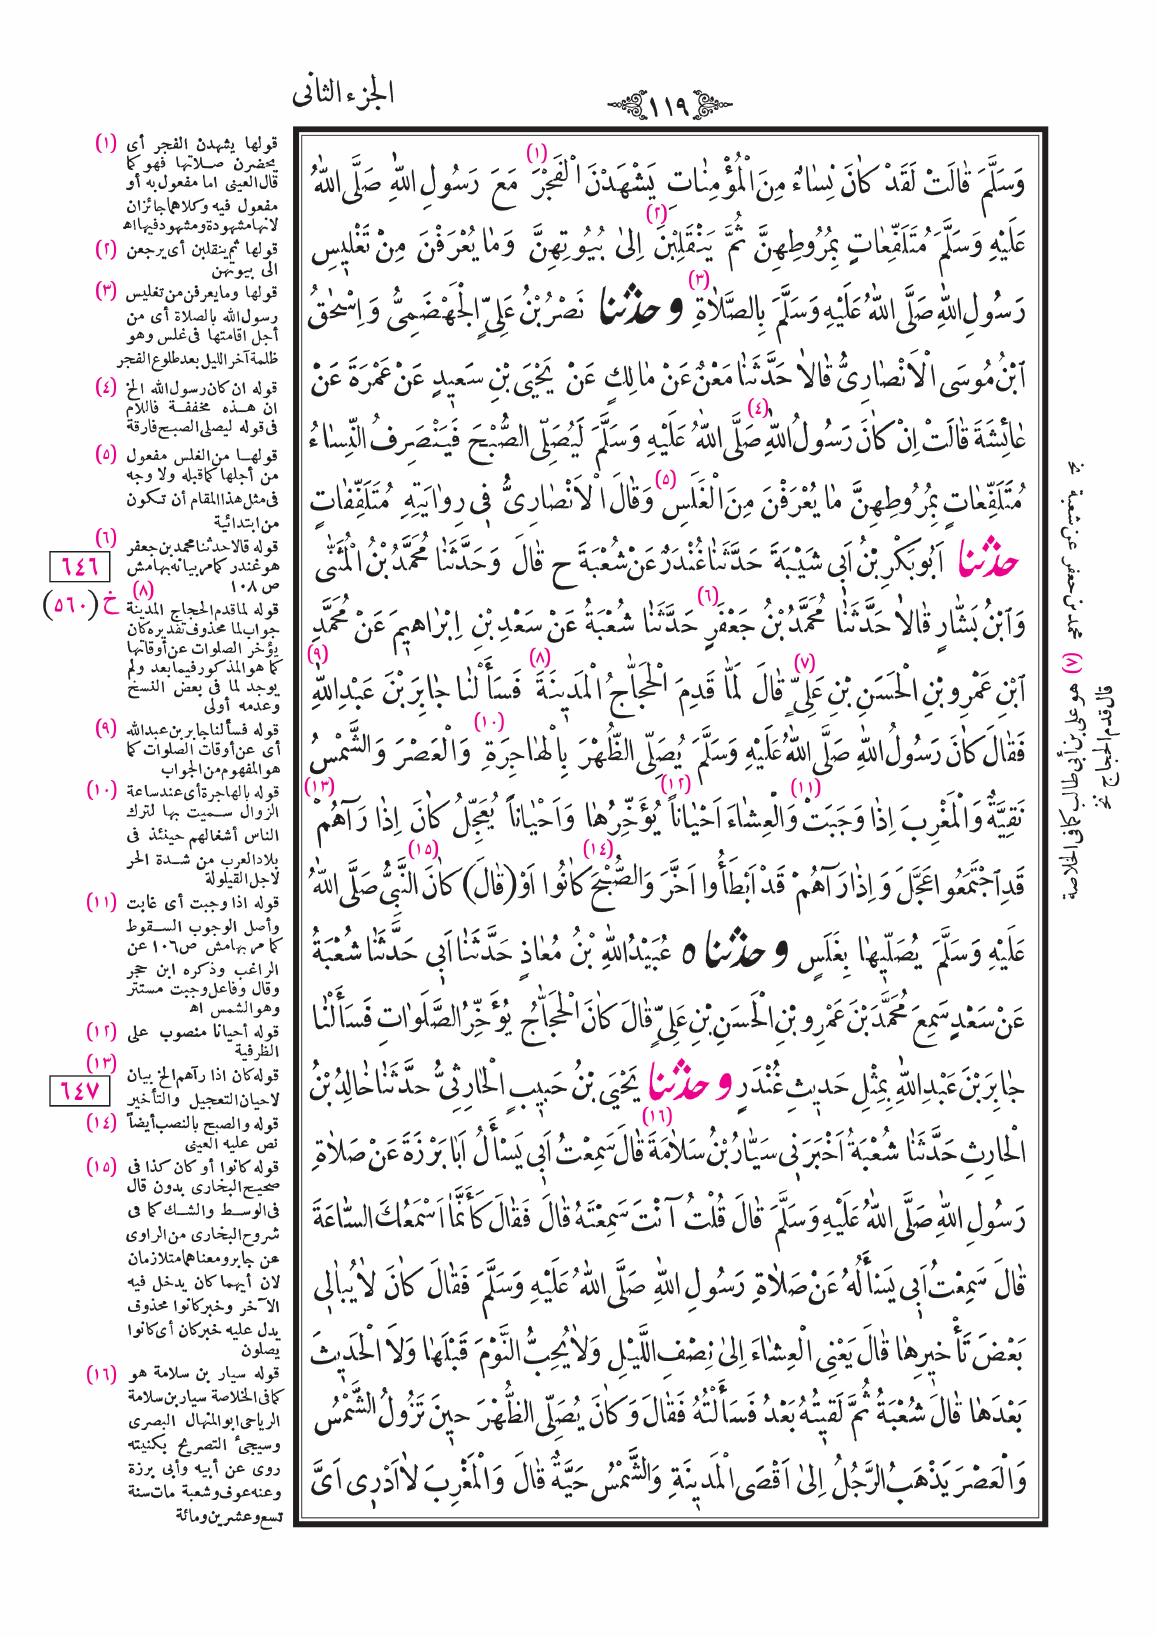 ١١٩
الجزء الثانى
وَسَلَّمَ قَالَتْ لَقَدْ كَانَ نِسَاءٌ مِنَ الْمُؤْمِنَاتِ يَشْهَدْنَ الْفَجْرَ (١) مَعَ رَسُولِ اللهِ صَلَّى اللهُ
عَلَيْهِ وَسَلَّمَ مُتَلَفِّعَاتٍ بِمُرُوطِهِنَّ ثُمَّ يَنْقَلِبْنَ (٢) اِلىٰ بُيُوتِهِنَّ وَمَا يُعْرَفْنَ مِنْ تَغْلِيسِ
رَسُولِ اللهِ صَلَّى اللهُ عَلَيْهِ وَسَلَّمَ بِالصَّلَاةِ (٣) و حدثنا نَصْرُ بْنُ عَلِىٍّ الْجَهْضَمِىُّ وَ اِسْحٰقُ
ابْنُ مُوسَى الْاَنْصَارِىُّ قَالَا حَدَّثَنَا مَعْنٌ عَنْ مَالِكٍ عَنْ يَحْيَى بْنِ سَعِيدٍ عَنْ عَمْرَةَ عَنْ
عَائِشَةَ قَالَتْ اِنْ كَانَ رَسُولُ اللهِ (٤) صَلَّى اللهُ عَلَيْهِ وَسَلَّمَ لَيُصَلِّى الصُّبْحَ فَيَنْصَرِفُ النِّسَاءُ
مُتَلَفِّعَاتٍ بِمُرُوطِهِنَّ مَا يُعْرَفْنَ مِنَ الْغَلَسِ (٥) وَقَالَ الْاَنْصَارِىُّ فِى رِوَايَتِهِ مُتَلَفِّفَاتٍ
حدثنا اَبُو بَكْرِ بْنُ اَبِى شَيْبَةَ حَدَّثَنَا غُنْدَرٌ عَنْ شُعْبَةَ ح قَالَ وَحَدَّثَنَا مُحَمَّدُ بْنُ الْمُثَنّٰى
وَابْنُ بَشَّارٍ قَالَا حَدَّثَنَا مُحَمَّدُ بْنُ جَعْفَرٍ (٦) حَدَّثَنَا شُعْبَةُ عَنْ سَعْدِ بْنِ اِبْرَاهِيمَ عَنْ مُحَمَّدِ
ابْنِ عَمْرِو بْنِ الْحَسَنِ بْنِ عَلِىٍّ (٧) قَالَ لَمَّا قَدِمَ الْحَجَّاجُ الْمَدِينَةَ (٨) فَسَأَلْنَا جَابِرَ بْنَ عَبْدِ اللهِ (٩)
فَقَالَ كَانَ رَسُولُ اللهِ صَلَّى اللهُ عَلَيْهِ وَسَلَّمَ يُصَلِّى الظُّهْرَ بِالْهَاجِرَةِ (١٠) وَالْعَصْرَ وَالشَّمْسُ
نَقِيَّةٌ وَالْمَغْرِبَ اِذَا وَجَبَتْ (١١) وَالْعِشَاءَ اَحْيَاناً (١٢) يُؤَخِّرُهَا وَاَحْيَاناً يُعَجِّلُ كَانَ اِذَا رَآهُمْ (١٣)
قَدِ اجْتَمَعُوا عَجَّلَ وَاِذَا رَآهُمْ قَدْ اَبْطَأُوا اَخَّرَ وَالصُّبْحَ (١٤) كَانُوا اَوْ (قَالَ) كَانَ (١٥) النَّبِىُّ صَلَّى اللهُ
عَلَيْهِ وَسَلَّمَ يُصَلِّيهَا بِغَلَسٍ و حدثناه عُبَيْدُ اللهِ بْنُ مُعَاذٍ حَدَّثَنَا اَبِى حَدَّثَنَا شُعْبَةُ
عَنْ سَعْدٍ سَمِعَ مُحَمَّدَ بْنَ عَمْرِو بْنِ الْحَسَنِ بْنِ عَلِىٍّ قَالَ كَانَ الْحَجَّاجُ يُؤَخِّرُ الصَّلَوَاتِ فَسَأَلْنَا
جَابِرَ بْنَ عَبْدِ اللهِ بِمِثْلِ حَدِيثِ غُنْدَرٍ و حدثنا يَحْيَى بْنُ حَبِيبٍ الْحَارِثِىُّ حَدَّثَنَا خَالِدُ بْنُ
الْحَارِثِ حَدَّثَنَا شُعْبَةُ اَخْبَرَنِى سَيَّارُ بْنُ سَلَامَةَ (١٦) قَالَ سَمِعْتُ اَبِى يَسْأَلُ اَبَا بَرْزَةَ عَنْ صَلَاةِ
رَسُولِ اللهِ صَلَّى اللهُ عَلَيْهِ وَسَلَّمَ قَالَ قُلْتُ آنْتَ سَمِعْتَهُ قَالَ فَقَالَ كَأَنَّمَا اَسْمَعُكَ السَّاعَةَ
قَالَ سَمِعْتُ اَبِى يَسْأَلُهُ عَنْ صَلَاةِ رَسُولِ اللهِ صَلَّى اللهُ عَلَيْهِ وَسَلَّمَ فَقَالَ كَانَ لَا يُبَالِى
بَعْضَ تَأْخِيرِهَا قَالَ يَعْنِى الْعِشَاءَ اِلىٰ نِصْفِ اللَّيْلِ وَلَا يُحِبُّ النَّوْمَ قَبْلَهَا وَلَا الْحَدِيثَ
بَعْدَهَا قَالَ شُعْبَةُ ثُمَّ لَقِيتُهُ بَعْدُ فَسَأَلْتُهُ فَقَالَ وَكَانَ يُصَلِّى الظُّهْرَ حِينَ تَزُولُ الشَّمْسُ
وَالْعَصْرَ يَذْهَبُ الرَّجُلُ اِلىٰ اَقْصَى الْمَدِينَةِ وَالشَّمْسُ حَيَّةٌ قَالَ وَالْمَغْرِبَ لَا اَدْرِى اَىَّ
(١) قولها يشهدن الفجر أى
يحضرن صلاتها فهو كما
قال العينى اما مفعول به أو
مفعول فيه وكلاهما جائزان
لانها مشهودة ومشهود فيها اه
(٢) قولها ثم ينقلبن أى يرجعن
الى بيوتهن
(٣) قولها وما يعرفن من تغليس
رسول الله بالصلاة أى من
أجل اقامتها فى غلس وهو
ظلمة آخر الليل بعد طلوع الفجر
(٤) قوله ان كان رسول الله الخ
ان هذه مخففة فاللام
فى قوله ليصلى الصبح فارقة
(٥) قولها من الغلس مفعول
من أجلها كما قبله ولا وجه
فى مثل هذا المقام أن تكون
من ابتدائية
(٦) قوله قالا حدثنا محمد بن جعفر
هو غندر كما مر بيانه بهامش
ص ١٠٨
٦٤٦
خ (٥٦٠)
(٨) قوله لما قدم الحجاج المدينة
جواب لما محذوف تقديره كان
يؤخر الصلوات عن أوقاتها
كما هو المذكور فيما بعد ولم
يوجد لما فى بعض النسخ
وعدمه أولى
(٩) قوله فسألنا جابر بن عبدالله
أى عن أوقات الصلوات كما
هو المفهوم من الجواب
(١٠) قوله بالهاجرة أى عند ساعة
الزوال سميت بها لترك
الناس أشغالهم حينئذ فى
بلاد العرب من شدة الحر
لاجل القيلولة
(١١) قوله اذا وجبت أى غابت
وأصل الوجوب السقوط
كما مر بهامش ص ١٠٦ عن
الراغب وذكره ابن حجر
وقال وفاعل وجبت مستتر
وهو الشمس اه
(١٢) قوله أحيانا منصوب على
الظرفية
(١٣) قوله كان اذا رآهم الخ بيان
لاحيان التعجيل والتأخير
٦٤٧
(١٤) قوله والصبح بالنصب أيضاً
نص عليه العينى
(١٥) قوله كانوا أو كان كذا فى
صحيح البخارى بدون قال
فى الوسط والشك كما فى
شروح البخارى من الراوى
عن جابر ومعناهما متلازمان
لان أيهما كان يدخل فيه
الآخر وخبر كانوا محذوف
يدل عليه خبر كان أى كانوا
يصلون
(١٦) قوله سيار بن سلامة هو
كما فى الخلاصة سيار بن سلامة
الرياحى ابو المنهال البصرى
وسيجىء التصريح بكنيته
روى عن أبيه وأبى برزة
وعنه عوف وشعبة مات سنة
تسع وعشرين ومائة
محمد بن جعفر عن شعبة نخ
(٧) هو على بن أبى طالب كما فى الخلاصة
قال قدم الحجاج نخ